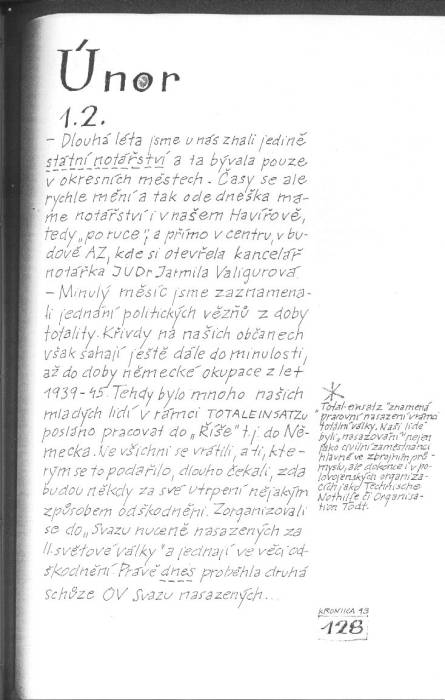 Únor
1.2.
- Dlouhá léta jsme u nás znali jedině
státní notářství a ta bývala pouze
v okresních městech. Časy se ale
rychle mění a tak ode dneška má-
me notářství i v našem Havířově,
tedy „po ruce", a přímo v centru, v bu-
dově AZ, kde si otevřela kancelář
notářka JUDr Jarmila Valigurová
- Minulý měsíc jsme zaznamena-
li jednání politických vězňů z doby
totality. Křivdy na našich občanech
však sahají ještě dále do minulosti,
až do doby německé okupace z let
1939-45. Tehdy bylo mnoho našich
mladých lidí v rámci TOTALEINSATZU
posláno pracovat do „Říše" t.j. do Ně-
mecka. Ne všichni se vrátili, a ti, kte-
rým se to podařilo, dlouho čekali, zda
budou někdy za své utrpení nějakým
způsobem odškodněni. Zorganizovali
se do „Svazu nuceně nasazených za
II. světové války" a jednají ve věci od-
škodnění. Právě dnes proběhla druhá
schůze OV Svazu nasazených...
Total-einsatz "znamená
pracovní nasazení v rámci
totální války. Naši lidé
byli „nasazováni" nejen
jako civilní zaměstnanci
hlavně ve zbrojním prů-
myslu, ale dokonce i v po-
lovojenských organiza-
cích jako Technische
Nothilfe či Organisa-
tion Todt.
KRONIKA 93
128